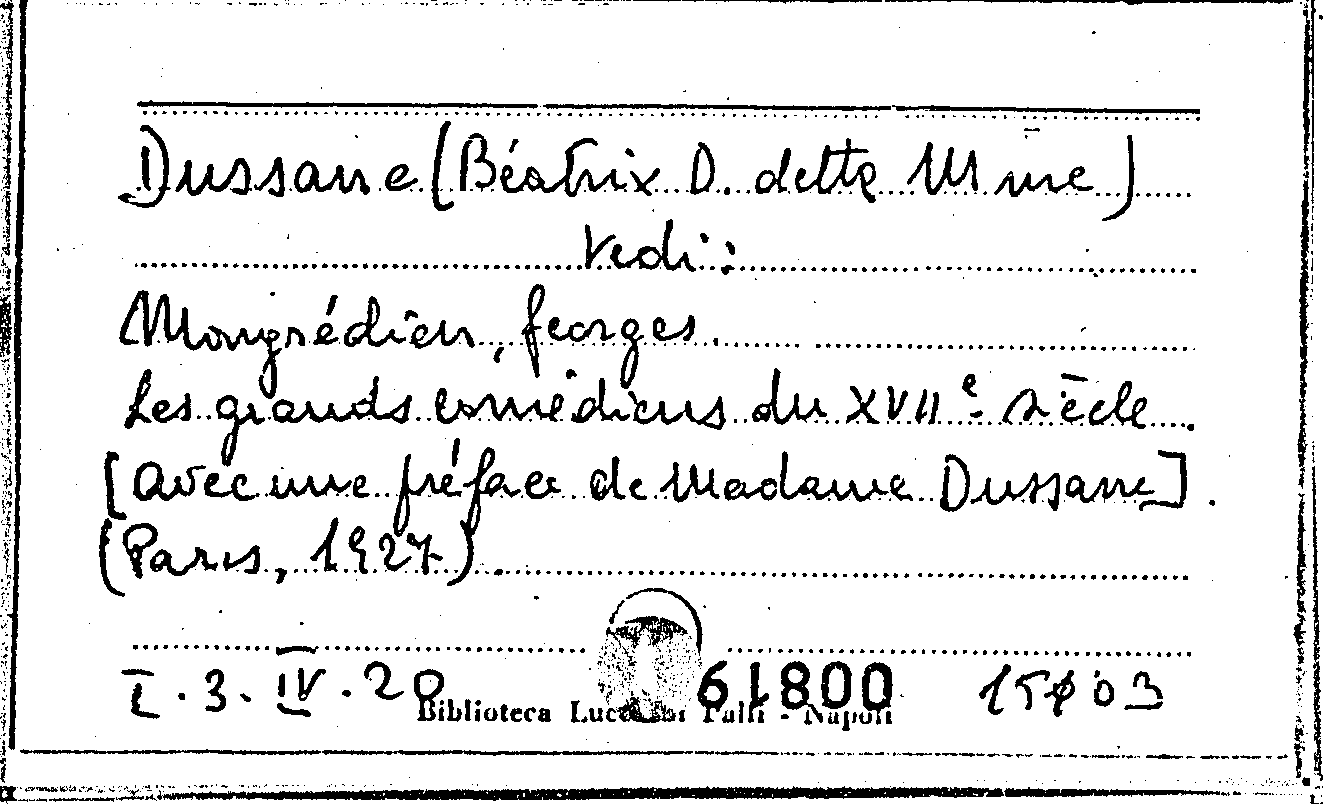 Dussane (Béatrix D. detta Mme)
Vedi:
Mongrédien, Georges.
Les grands comédiens du XVIIe siècle.
[Avec une préface de Madame Dussane].
(Paris, 1927).
I.3.IV.20 61800 15003
Biblioteca Lucchesi Palli - Napoli